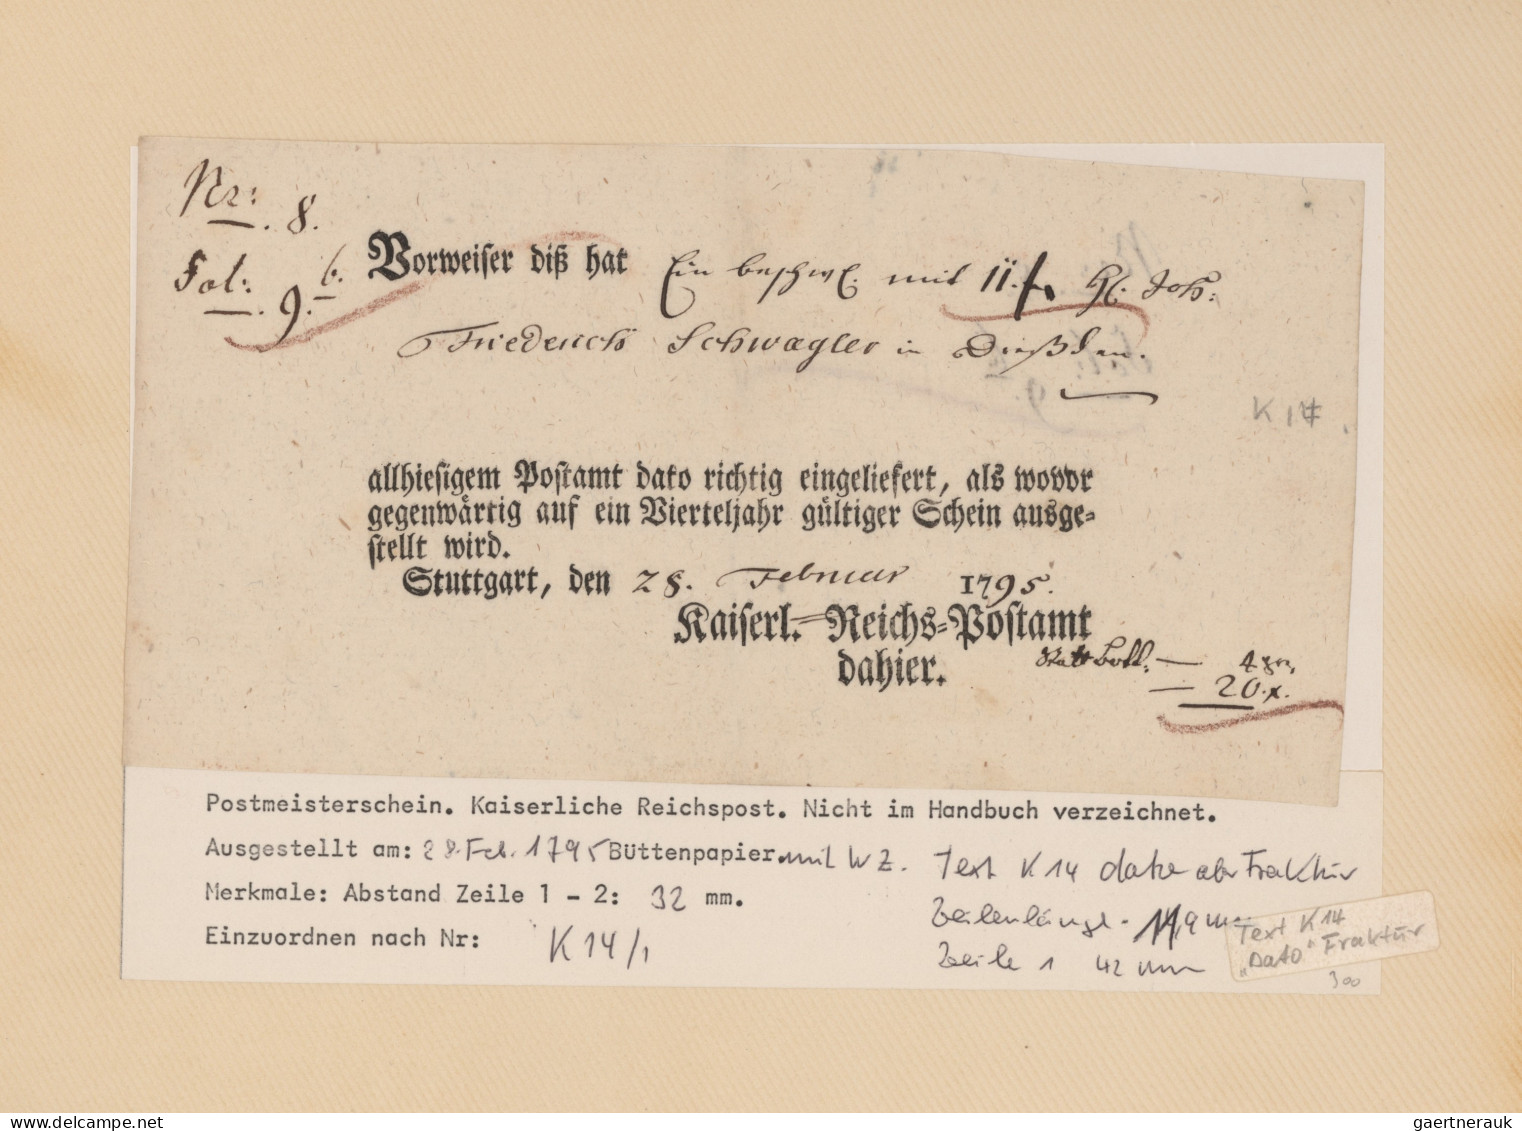 Nr: 8.
Fol: 9. b.
Vorweiser diß hat Ein beschw. mit 11 f. H. Joh:
Friederich Schwagler in
K 14
allhiesigem Postamt dato richtig eingeliefert, als wovor
gegenwärtig auf ein Vierteljahr gültiger Schein ausge=
stellt wird.
Stuttgart, den 28. Februar 1795.
Kaiserl. Reichs=Postamt
dahier.
4 gr.
— 20. x.
Postmeisterschein. Kaiserliche Reichspost. Nicht im Handbuch verzeichnet.
Ausgestellt am: 28. Feb. 1795 Büttenpapier. mit WZ.
Merkmale: Abstand Zeile 1 - 2: 32 mm.
Einzuordnen nach Nr: K 14/1
Text K 14 dato aber Fraktur
Zeilenlänge
Zeile 1 42 mm
Text K 14
„Dato" Fraktur
300
gaertnerauk